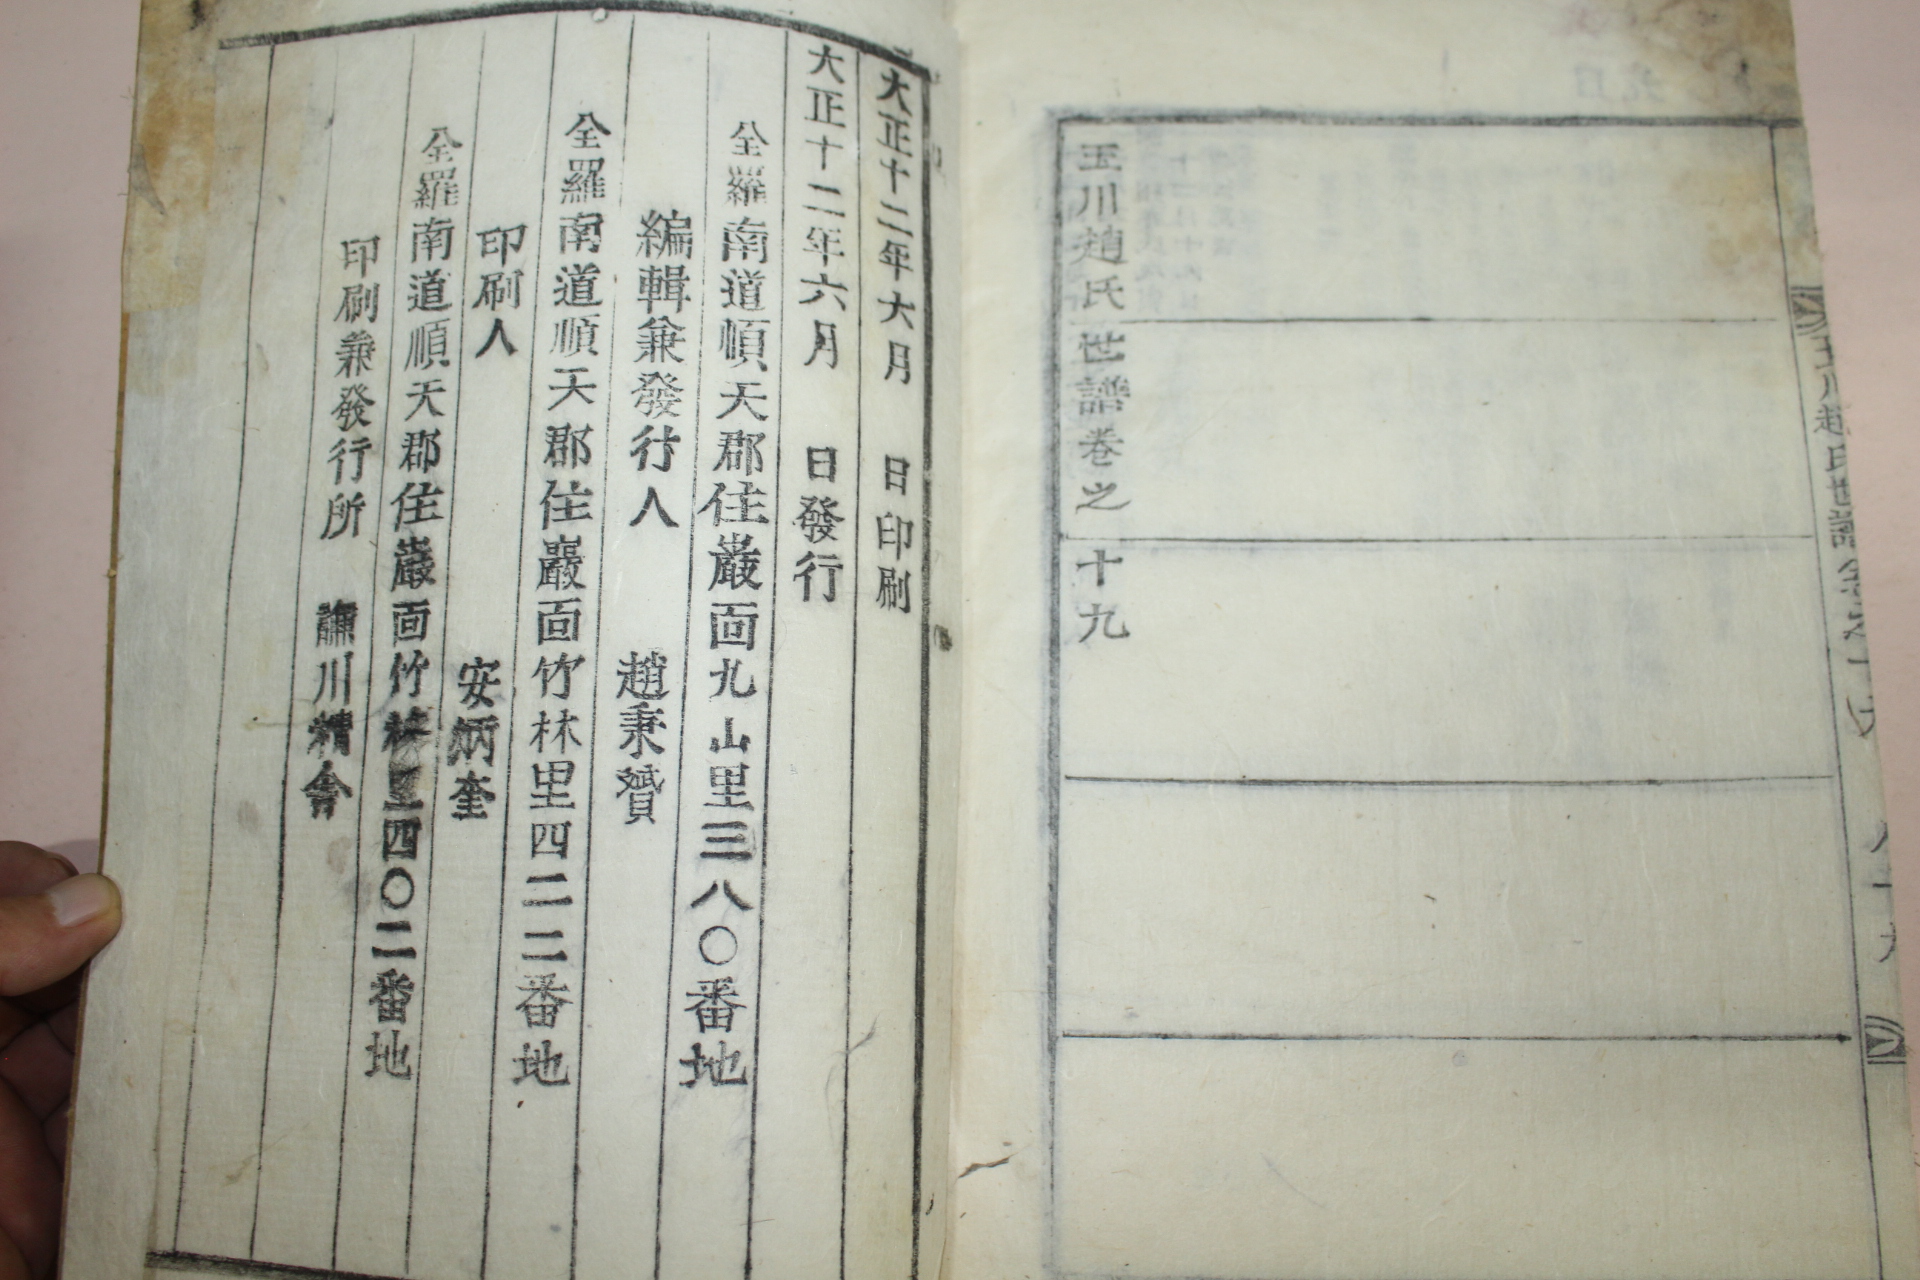 玉川趙氏世譜卷之十九
大正十二年六月 日印刷
大正十二年六月 日發行
全羅南道順天郡住巖面九山里三八〇番地
編輯兼發行人 趙秉贇
全羅南道順天郡住巖面竹林里四二二番地
印刷人 安炳奎
全羅南道順天郡住巖面竹林里四〇二番地
印刷兼發行所 謙川精舍